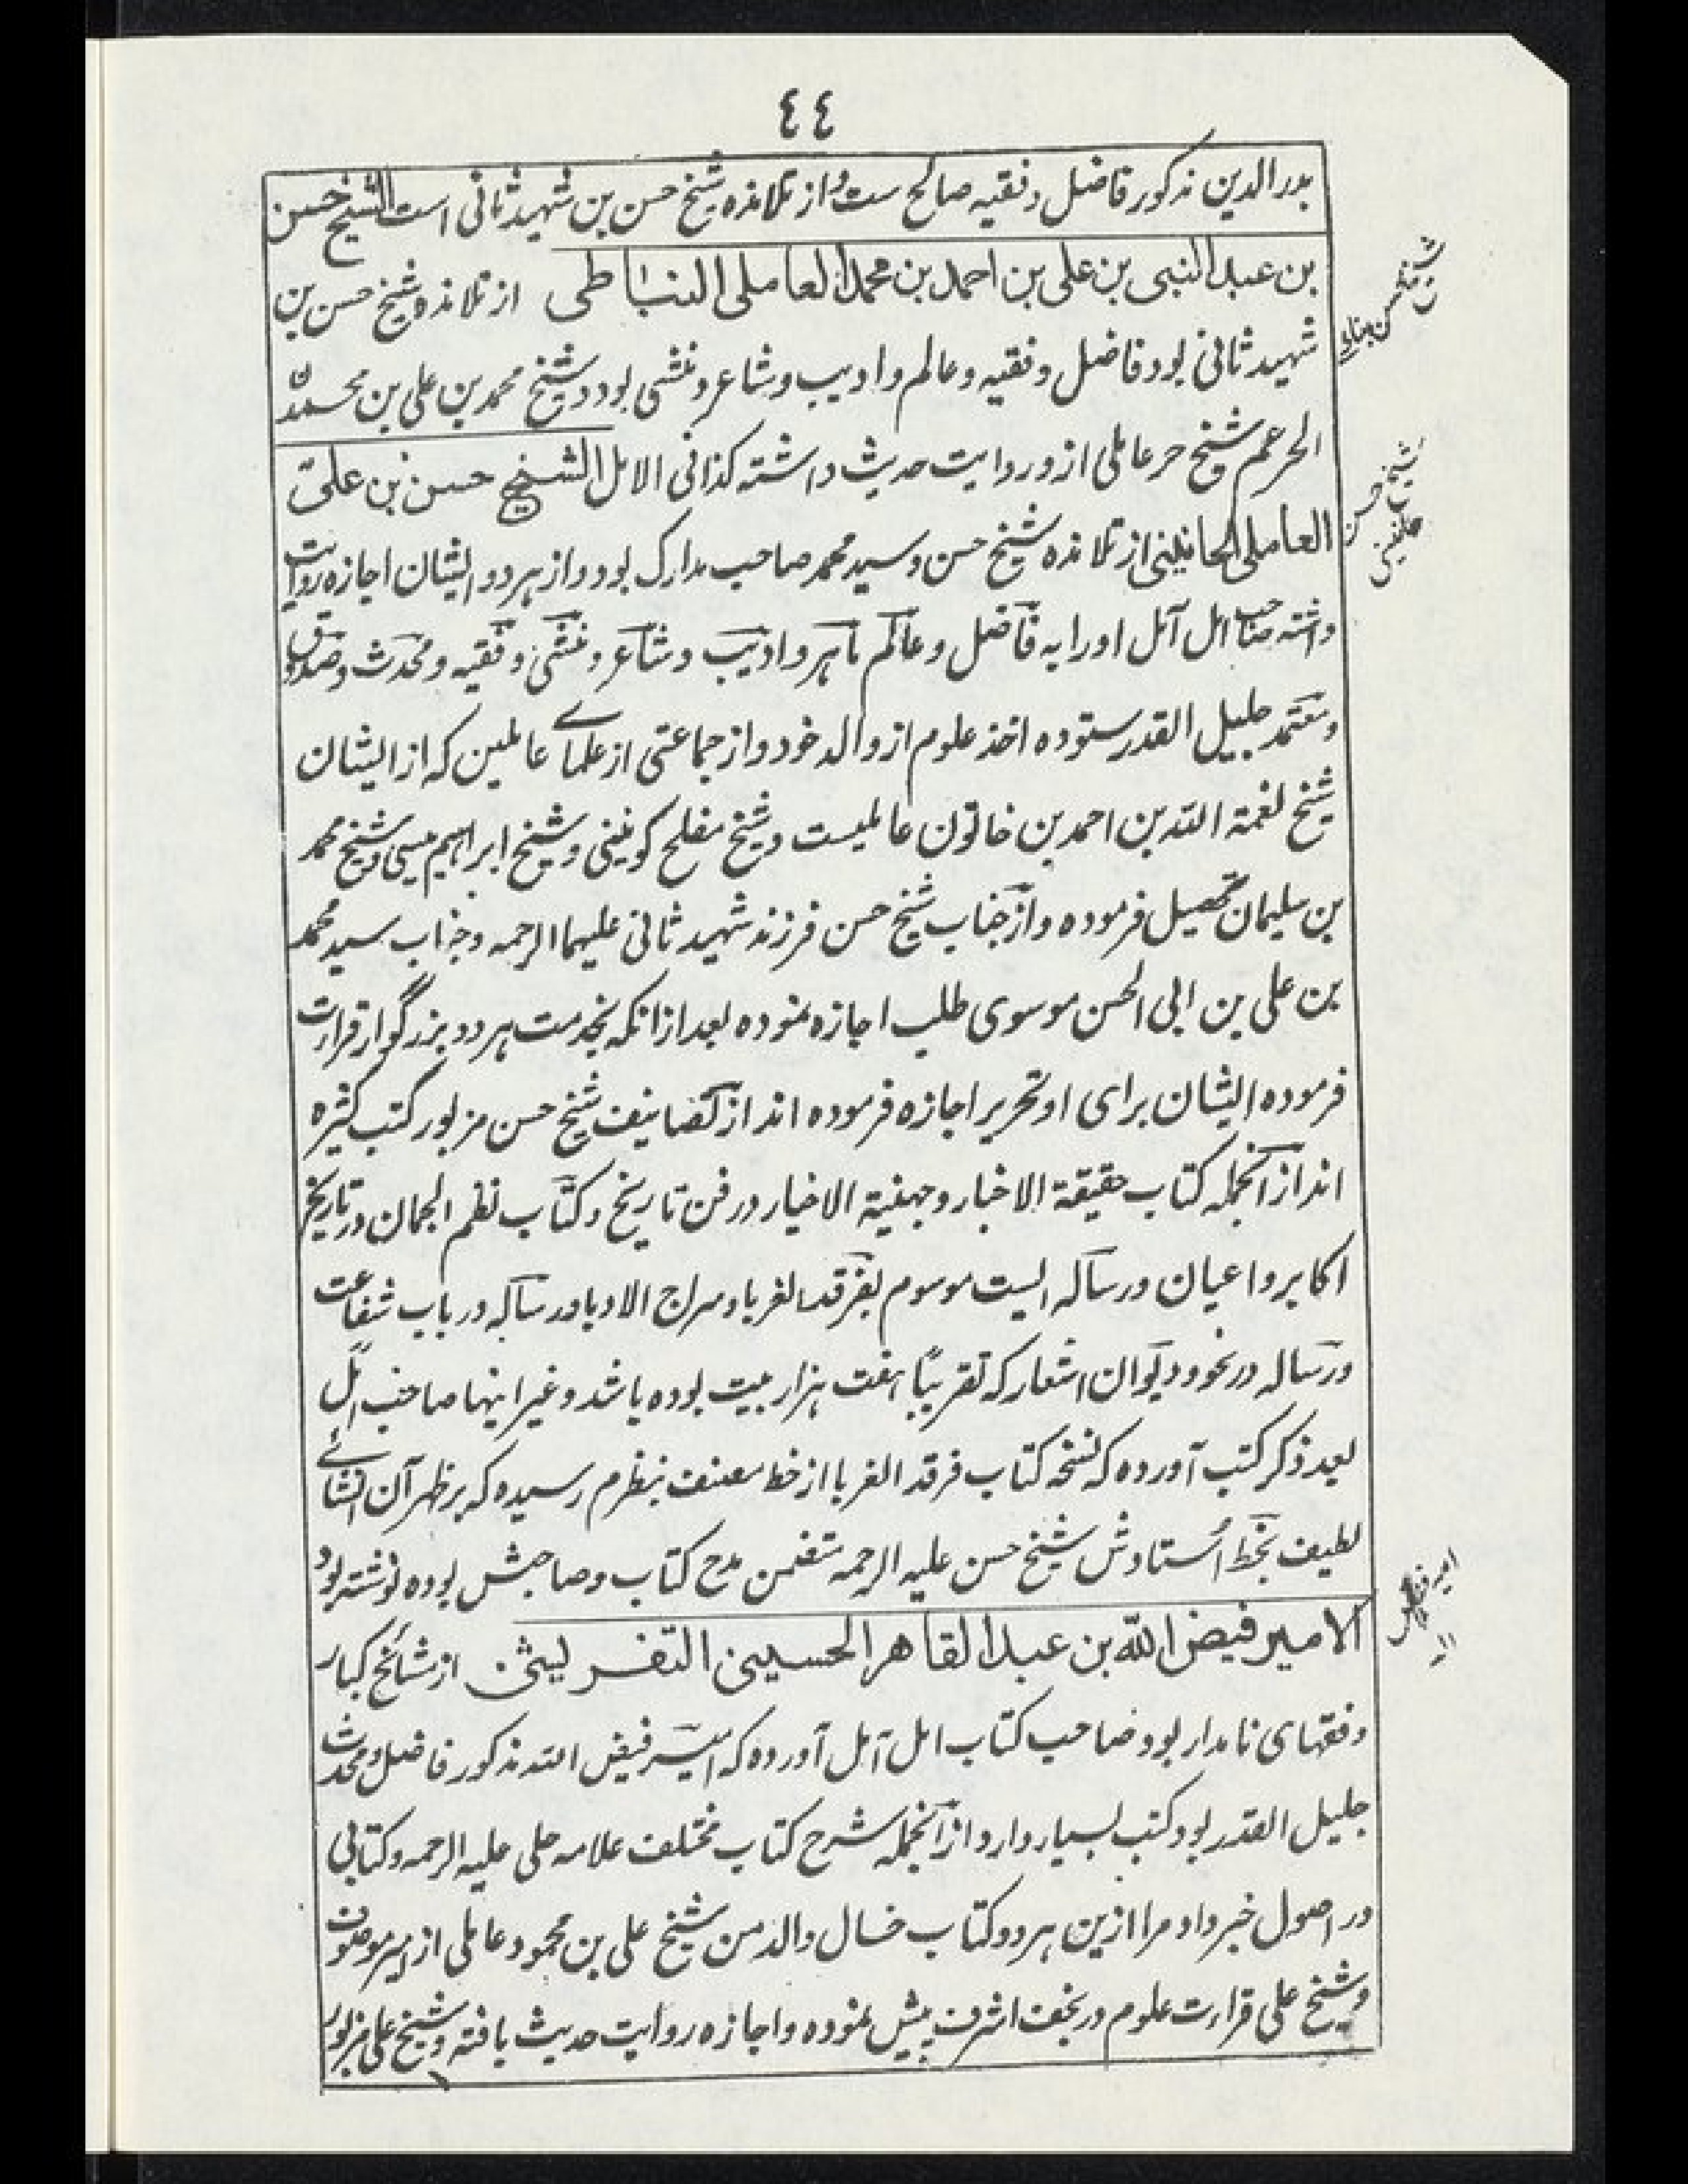 ٤٤
بدر الدین مذکور فاضل و فقیه صالح ست و از تلامذه شیخ حسن بن شهید ثانی است الشیخ حسن
بن عبد النبی بن علی بن احمد بن محمد العاملی النباطی از تلامذه شیخ حسن بن
شهید ثانی بود فاضل و فقیه و عالم و ادیب و شاعر و منشی بود و شیخ محمد بن علی بن محمد
الحر عم شیخ حر عاملی از و روایت حدیث داشته کذا فی الامل الشیخ حسن بن علی
العاملی الحانینی از تلامذه شیخ حسن و سید محمد صاحب مدارک بود و از هر دو ایشان اجازه روایت
داشته صاحب امل آمل او را به فاضل و عالم ماهر و ادیب و شاعر و منشی و فقیه و محدث و صدوق
و معتمد جلیل القدر ستوده اخذ علوم از والد خود و از جماعتی از علمای عاملین که از ایشان
شیخ نعمة الله بن احمد بن خاتون عاملیست و شیخ مفلح کونینی و شیخ ابراهیم میسی و شیخ محمد
بن سلیمان تحصیل فرموده و از جناب شیخ حسن فرزند شهید ثانی علیهما الرحمه و جناب سید محمد
بن علی بن ابی الحسن موسوی طلب اجازه نموده بعد از انکه بخدمت هر دو بزرگوار قرارت
فرموده ایشان برای او تحریر اجازه فرموده اند از تصانیف شیخ حسن مزبور کتب کثیره
اند از آنجمله کتاب حقیقة الاخبار و جهنیة الاخیار در فن تاریخ و کتاب نظم الجمان در تاریخ
اکابر و اعیان و رساله ایست موسوم بفرقد الغربا و سراج الادبا و رساله در باب شفاعت
و رساله در نحو و دیوان اشعار که تقریباً هفت هزار بیت بوده باشد و غیر اینها صاحب امل
بعد ذکر کتب آورده که نسخه کتاب فرقد الغربا از خط مصنف بنظرم رسیده که بر ظهر آن انشائے
لطیف بخط أستادش شیخ حسن علیه الرحمه متضمن مدح کتاب و صاحبش بوده نوشته بود
الامیر فیض الله بن عبد القاهر الحسینی التفریشی از مشائخ کبار
و فقهای نامدار بود صاحب کتاب امل آمل آورده که امیر فیض الله مذکور فاضل و محدث
جلیل القدر بود کتب بسیار دارد از آنجمله شرح کتاب مختلف علامه حلی علیه الرحمه و کتابی
در اصول خبر داد مرا ازین هر دو کتاب خال والد من شیخ علی بن محمود عاملی از میر موصوف
و شیخ علی قرارت علوم در نجف اشرف پیش نموده و اجازه روایت حدیث یافته و شیخ علی مزبور
شیخ حسن
حانینی